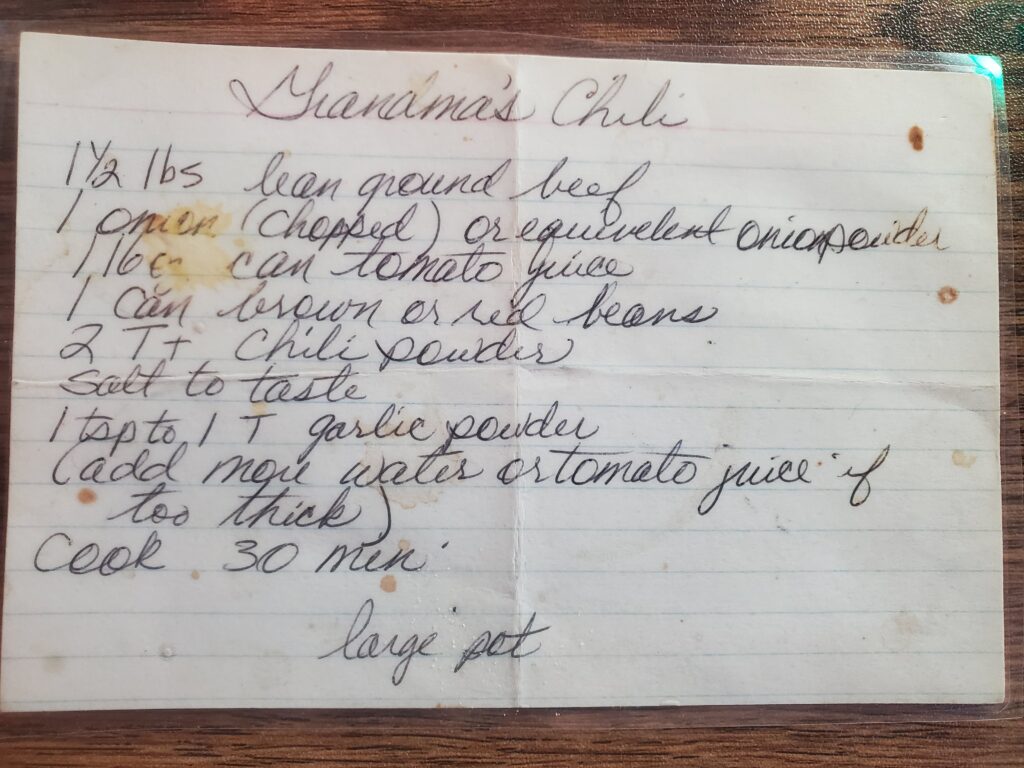 Grandma's Chili
1 1/2 lbs lean ground beef
1 onion (chopped) or equivelent onion powder
1 can tomato juice
1 can brown or red beans
2 T+ chili powder
salt to taste
1 tsp to 1 T garlic powder
(add more water or tomato juice if
too thick)
Cook 30 min.
large pot